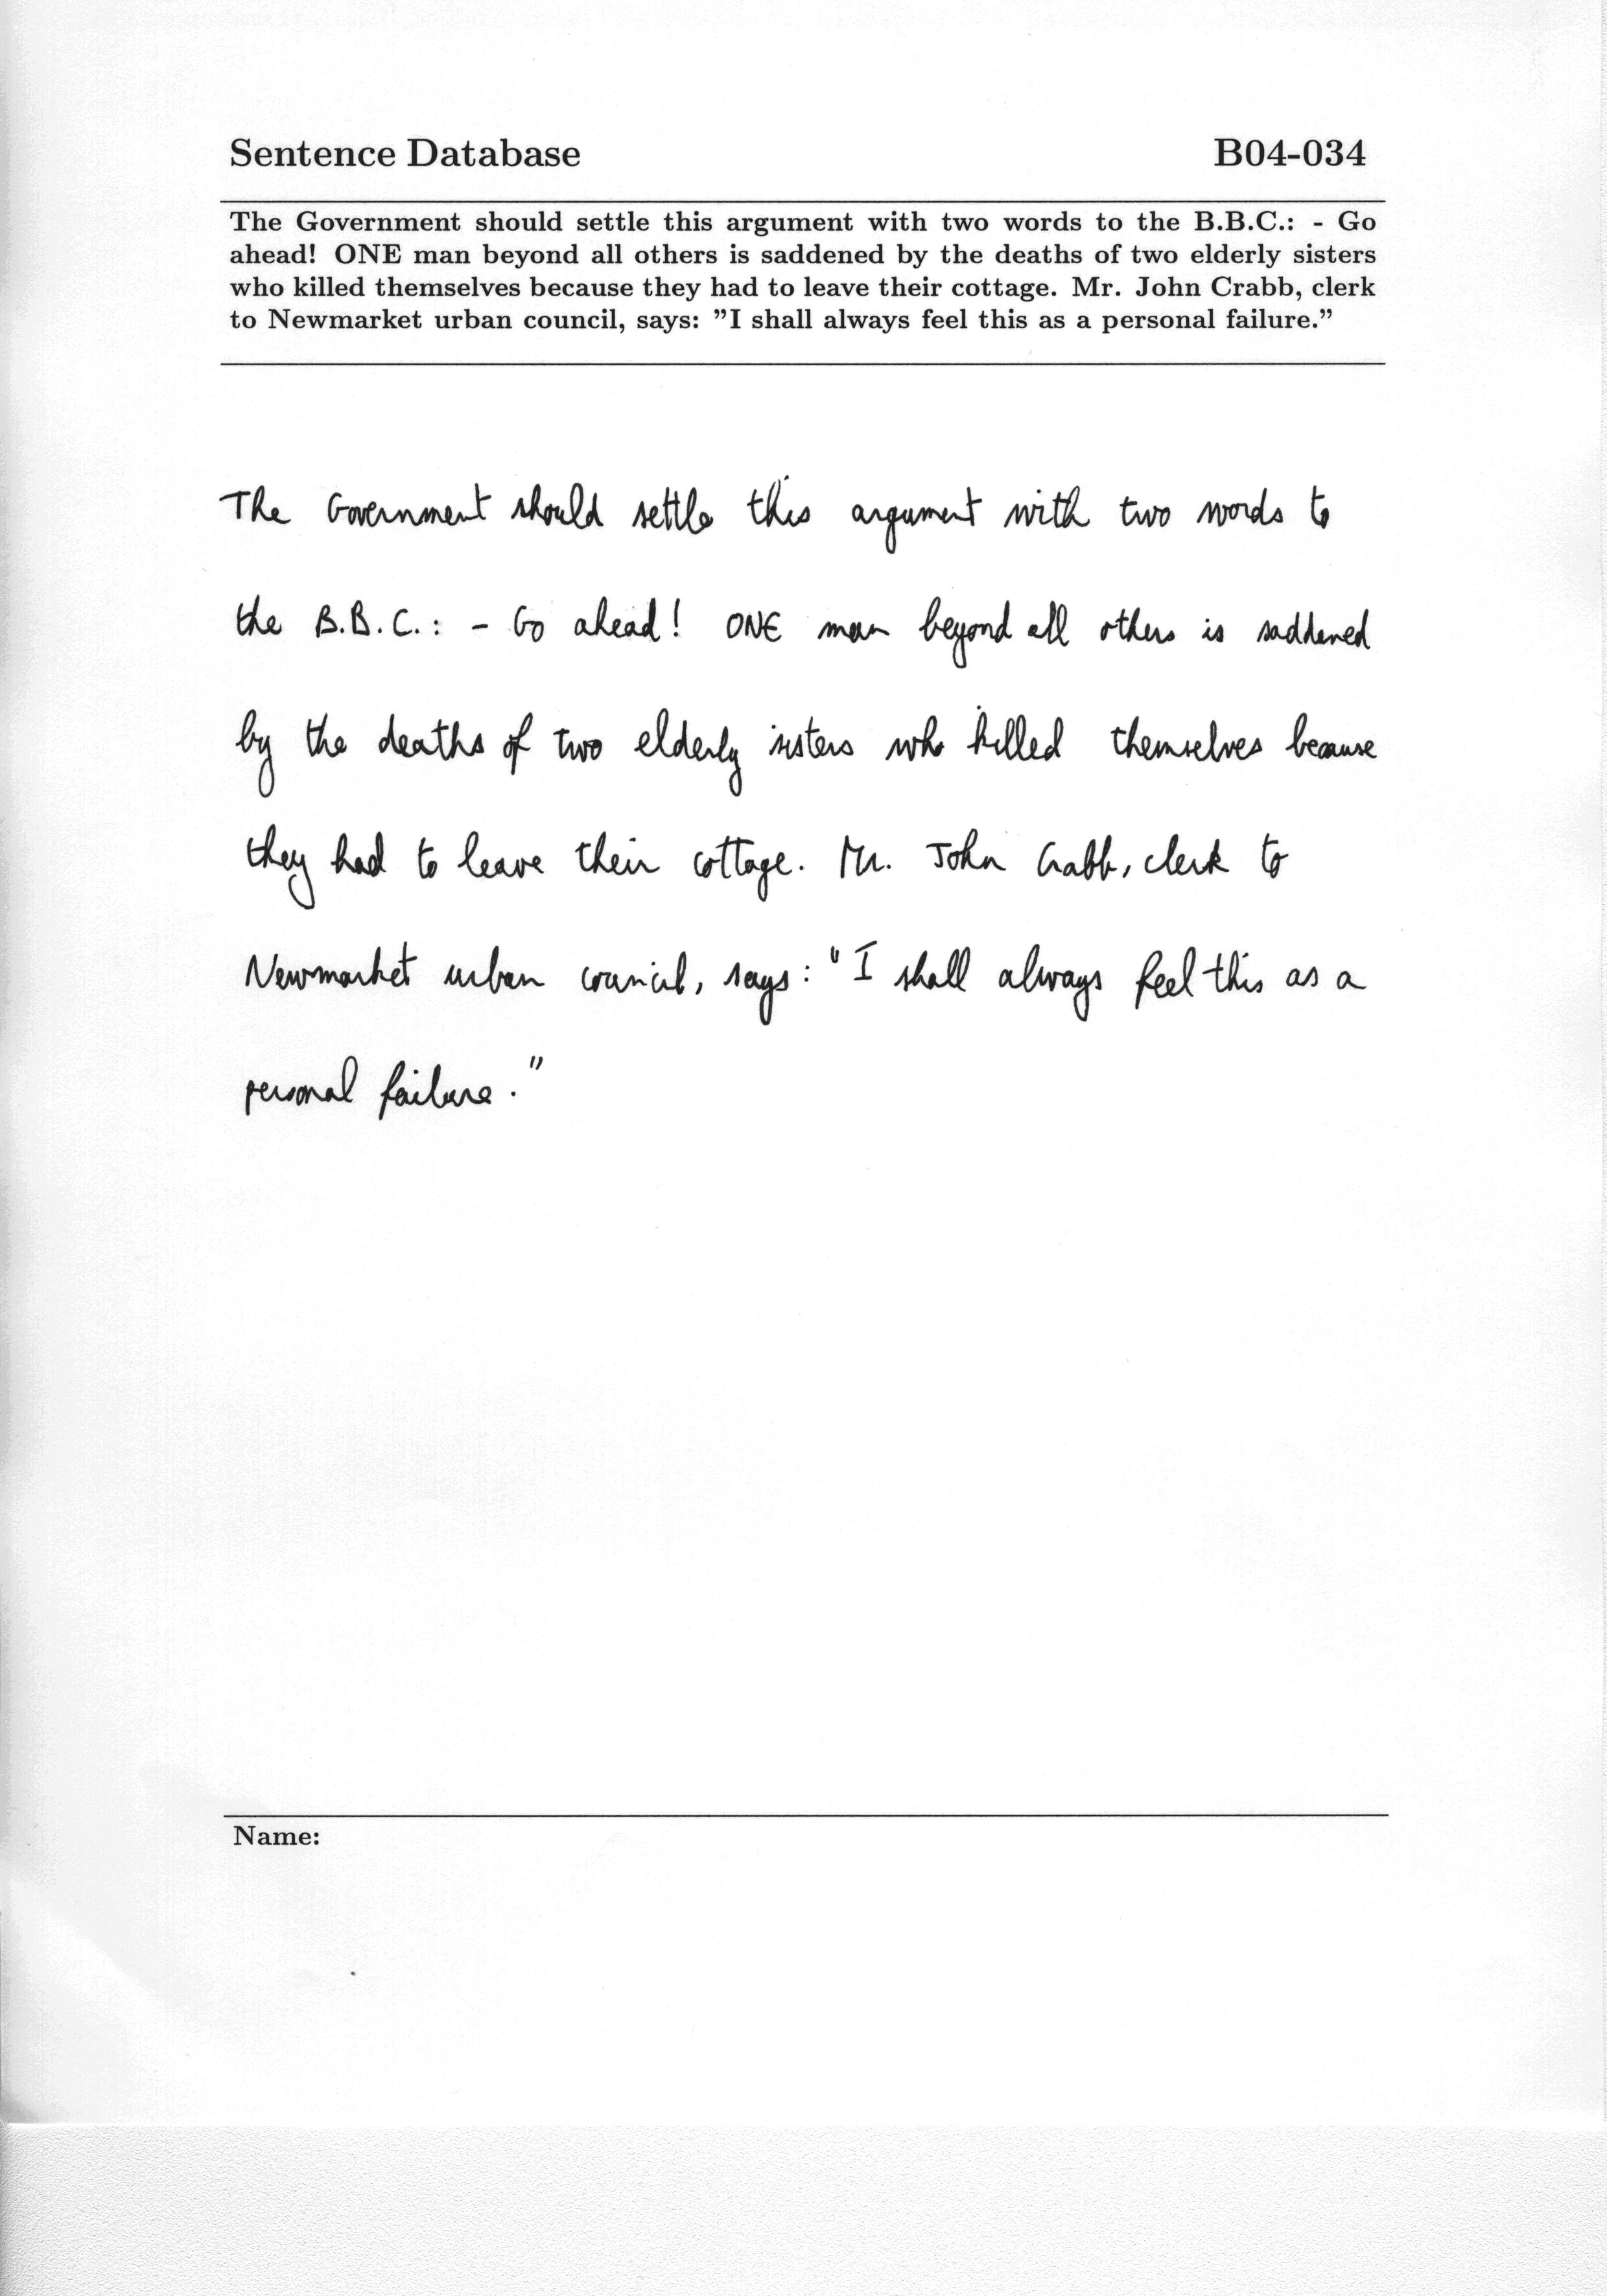 Sentence Database B04-034
The Government should settle this argument with two words to the B.B.C.: - Go
ahead! ONE man beyond all others is saddened by the deaths of two elderly sisters
who killed themselves because they had to leave their cottage. Mr. John Crabb, clerk
to Newmarket urban council, says: ”I shall always feel this as a personal failure.”
The Government should settle this argument with two words to
the B.B.C.: - Go ahead! ONE man beyond all others is saddened
by the deaths of two elderly sisters who killed themselves because
they had to leave their cottage. Mr. John Crabb, clerk to
Newmarket urban council, says: "I shall always feel this as a
personal failure."
Name: